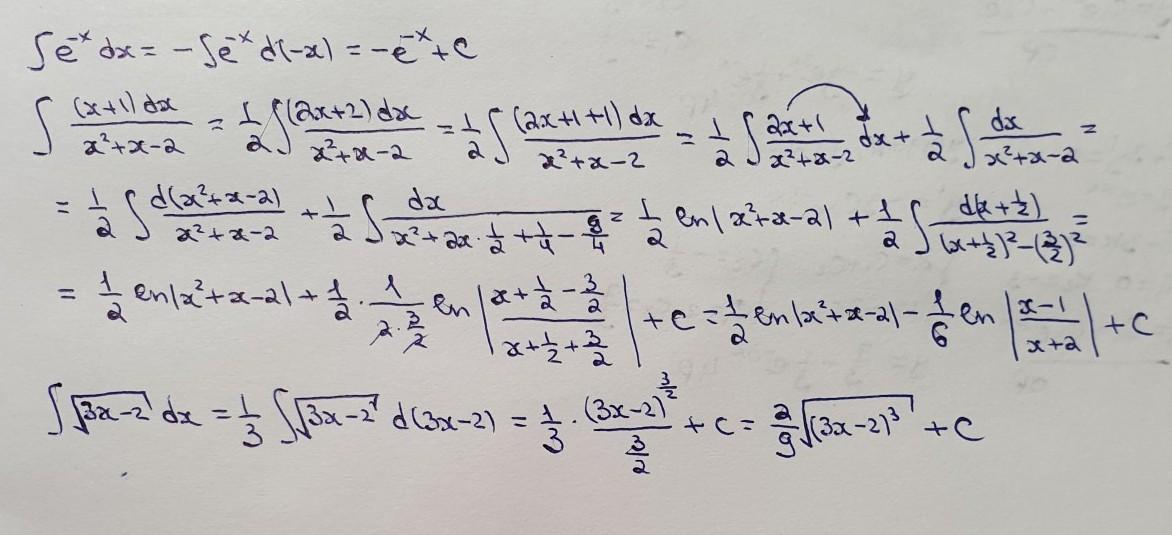 ∫e^{-x} dx = -∫e^{-x} d(-x) = -e^{-x} + C
∫ (x+1)dx/(x²+x-2) = 1/2 ∫ (2x+2)dx/(x²+x-2) = 1/2 ∫ (2x+1+1)dx/(x²+x-2) = 1/2 ∫ (2x+1)/(x²+x-2) dx + 1/2 ∫ dx/(x²+x-2) =
= 1/2 ∫ d(x²+x-2)/(x²+x-2) + 1/2 ∫ dx/(x²+2x·1/2+1/4-9/4) = 1/2 ln|x²+x-2| + 1/2 ∫ d(x+1/2)/((x+1/2)²-(3/2)²) =
= 1/2 ln|x²+x-2| + 1/2 · 1/(2·3/2) ln|(x+1/2-3/2)/(x+1/2+3/2)| + C = 1/2 ln|x²+x-2| - 1/6 ln|(x-1)/(x+2)| + C
∫√(3x-2) dx = 1/3 ∫√(3x-2) d(3x-2) = 1/3 · (3x-2)^{3/2}/(3/2) + C = 2/9 √((3x-2)³) + C